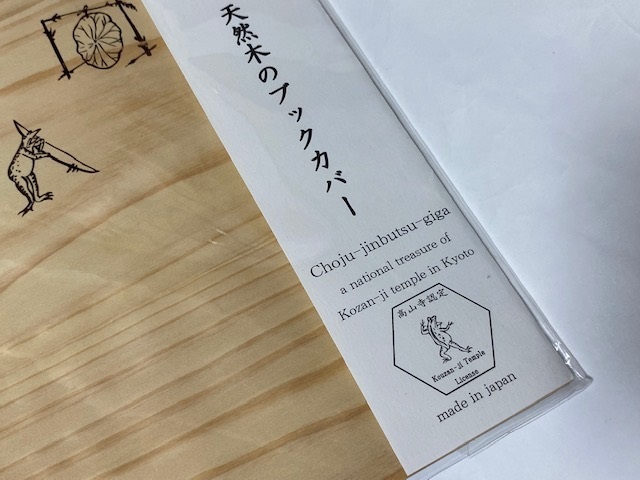 天然木のブックカバー
Choju-jinbutsu-giga
a national treasure of
Kozan-ji temple in Kyoto
高山寺認定
Kouzan-ji Temple
License
made in japan